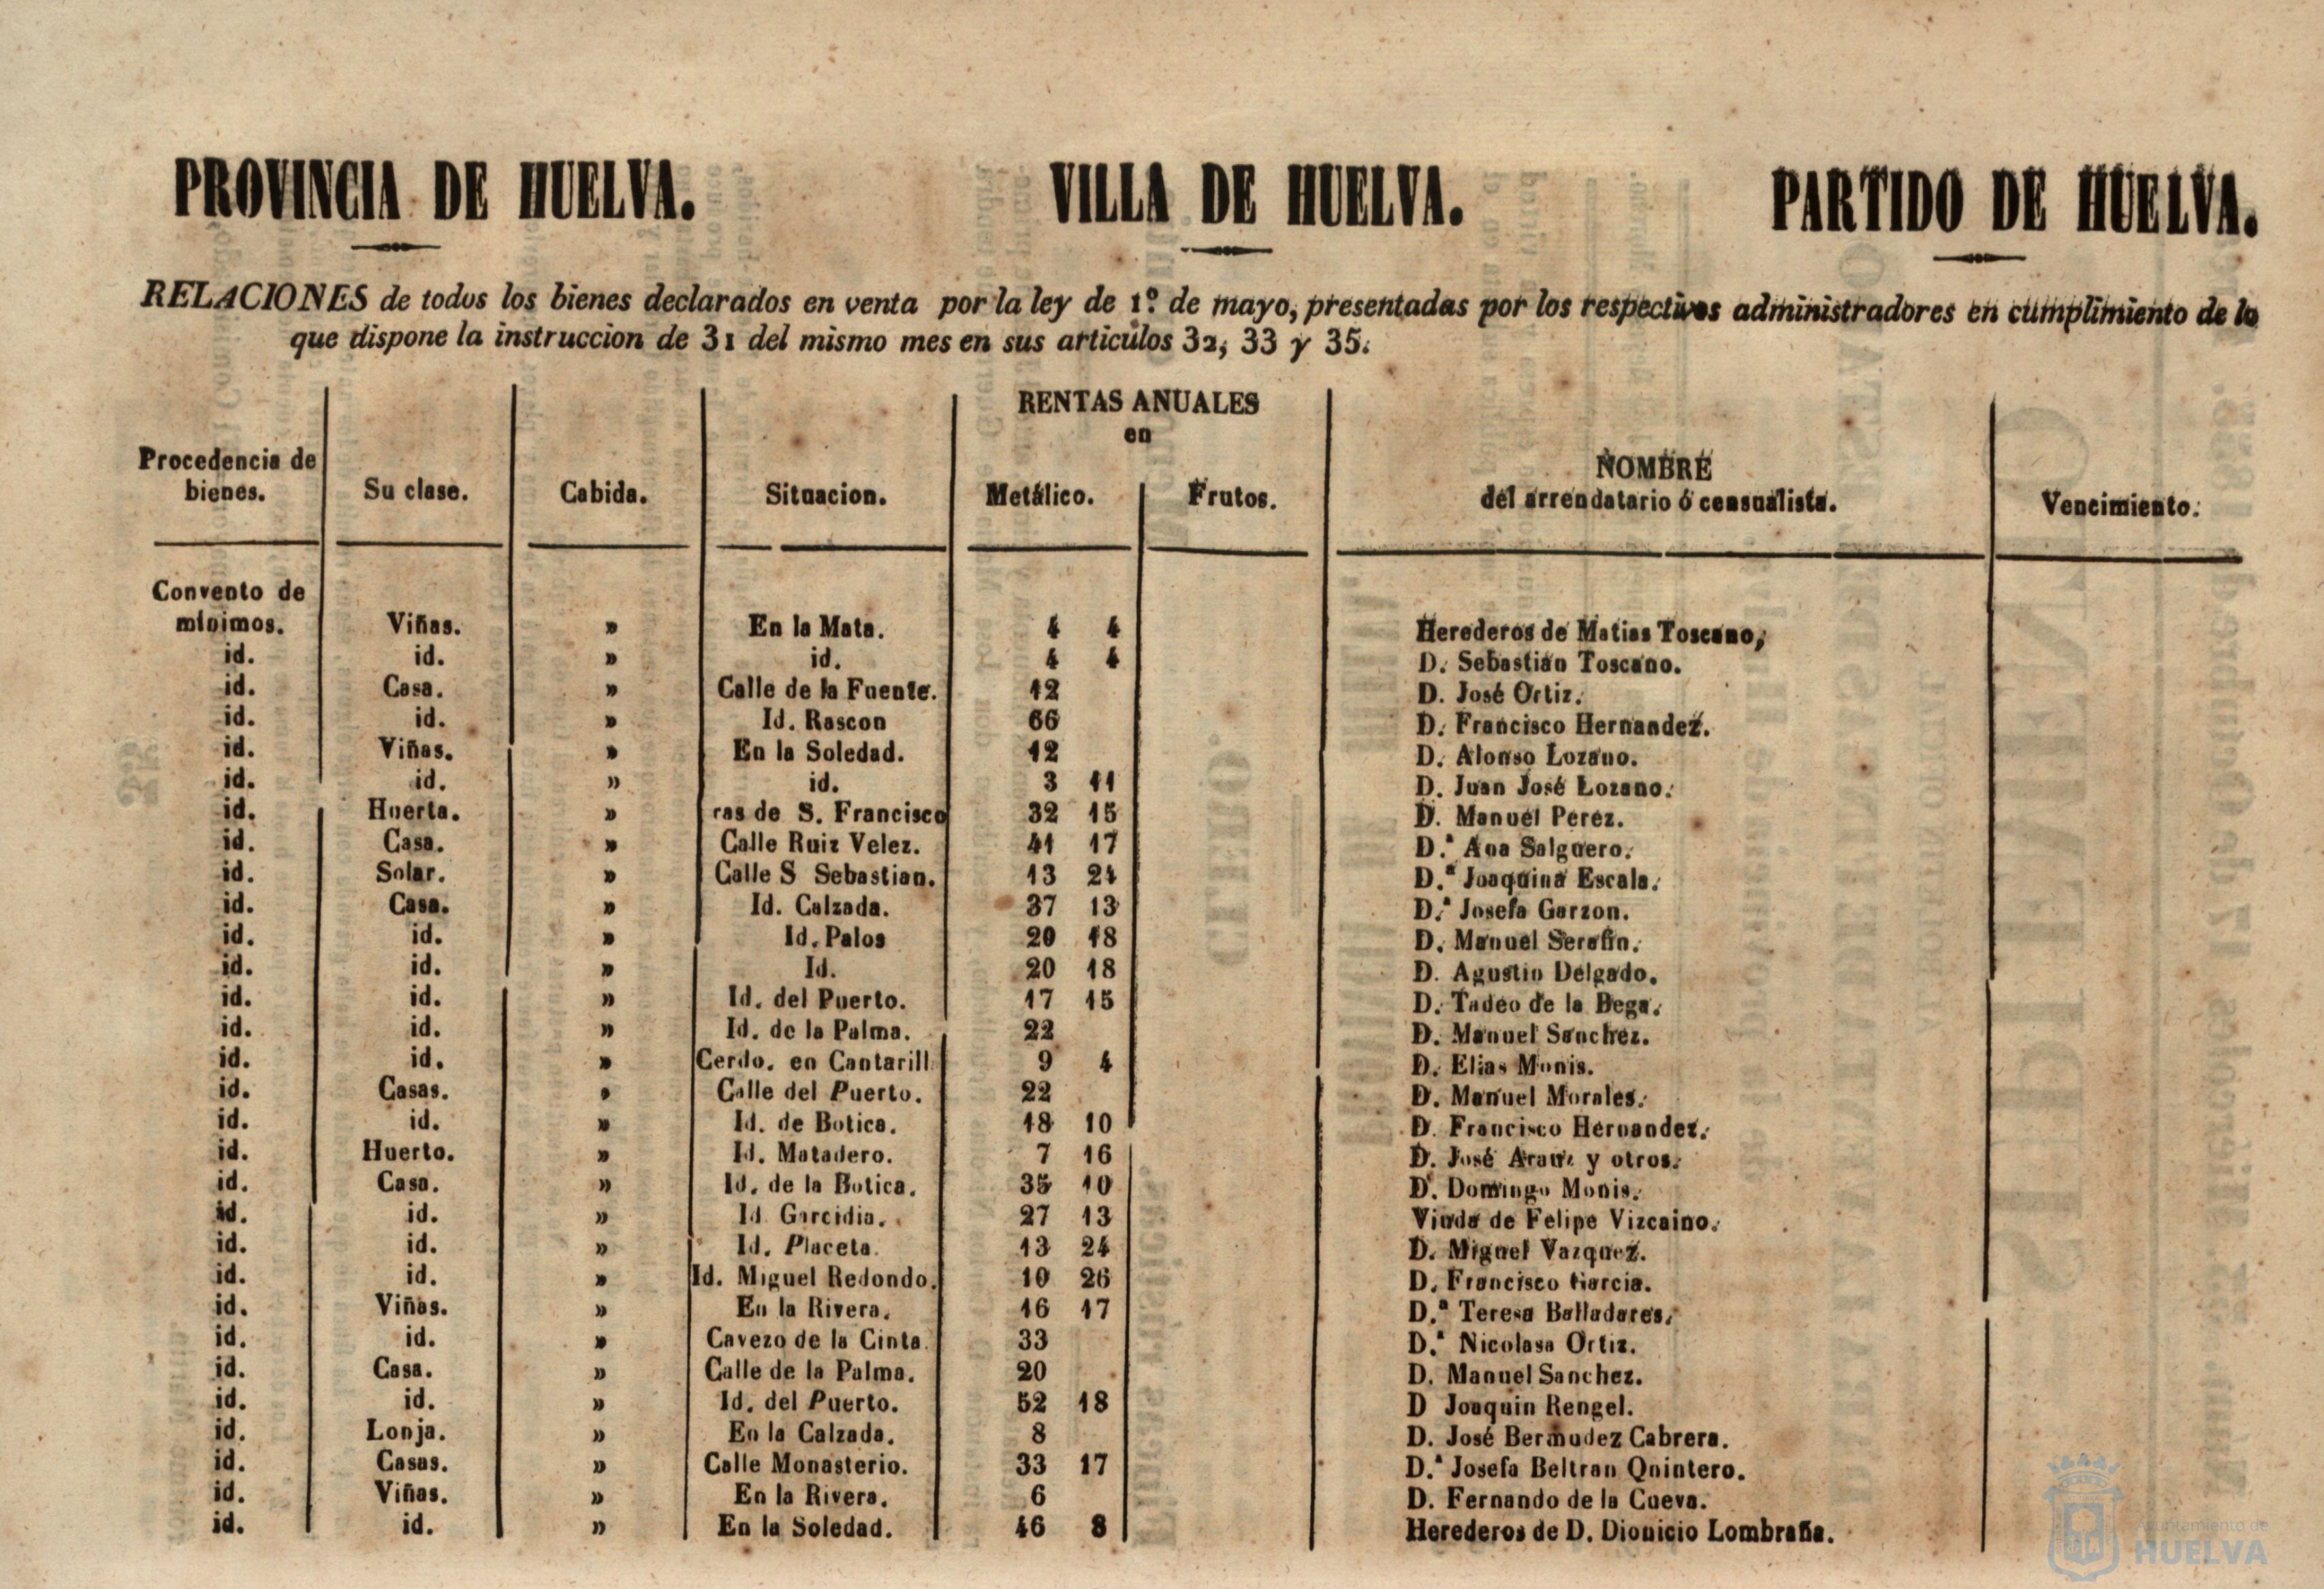 PROVINCIA DE HUELVA. VILLA DE HUELVA. PARTIDO DE HUELVA.
RELACIONES de todos los bienes declarados en venta por la ley de 1º. de mayo, presentadas por los respectivos administradores en cumplimiento de lo
que dispone la instruccion de 31 del mismo mes en sus articulos 32, 33 y 35.
RENTAS ANUALES
en
Procedencia de bienes. Su clase. Cabida. Situacion. Metálico. Frutos. NOMBRE del arrendatario ó censualista. Vencimiento.
Convento de
mínimos. Viñas. » En la Mata. 4 4 Herederos de Matias Toscano,
id. id. » id. 4 4 D. Sebastián Toscano.
id. Casa. » Calle de la Fuente. 12 D. José Ortiz.
id. id. » Id. Rascon 66 D. Francisco Hernandez.
id. Viñas. » En la Soledad. 12 D. Alonso Lozano.
id. id. » id. 3 11 D. Juan José Lozano.
id. Huerta. » ras de S. Francisco 32 15 D. Manuel Perez.
id. Casa. » Calle Ruiz Velez. 41 17 D.ª Ana Salguero.
id. Solar. » Calle S Sebastian. 13 24 D.ª Joaquina Escala.
id. Casa. » Id. Calzada. 37 13 D.ª Josefa Garzon.
id. id. » Id. Palos 20 18 D. Manuel Serafin.
id. id. » Id. 20 18 D. Agustin Delgado.
id. id. » Id. del Puerto. 17 15 D. Tadeo de la Bega.
id. id. » Id. de la Palma. 22 D. Manuel Sanchez.
id. id. » Cerdo. en Cantarill 9 4 D. Elias Monis.
id. Casas. » Calle del Puerto. 22 D. Manuel Morales.
id. id. » Id. de Botica. 18 10 D. Francisco Hernandez.
id. Huerto. » Id. Matadero. 7 16 D. José Arauz y otros.
id. Casa. » Id. de la Botica. 35 10 D. Domingo Monis.
id. id. » Id Garcidia. 27 13 Viuda de Felipe Vizcaino.
id. id. » Id. Placeta. 13 24 D. Miguel Vazquez.
id. id. » Id. Miguel Redondo. 10 26 D. Francisco Garcia.
id. Viñas. » En la Rivera. 16 17 D.ª Teresa Balladares.
id. id. » Cavezo de la Cinta. 33 D.ª Nicolasa Ortiz.
id. Casa. » Calle de la Palma. 20 D. Manuel Sanchez.
id. id. » Id. del Puerto. 52 18 D Joaquin Rengel.
id. Lonja. » En la Calzada. 8 D. José Bermudez Cabrera.
id. Casas. » Calle Monasterio. 33 17 D.ª Josefa Beltran Quintero.
id. Viñas. » En la Rivera. 6 D. Fernando de la Cueva.
id. id. » En la Soledad. 46 8 Herederos de D. Dionicio Lombraña.
Ayuntamiento de
HUELVA